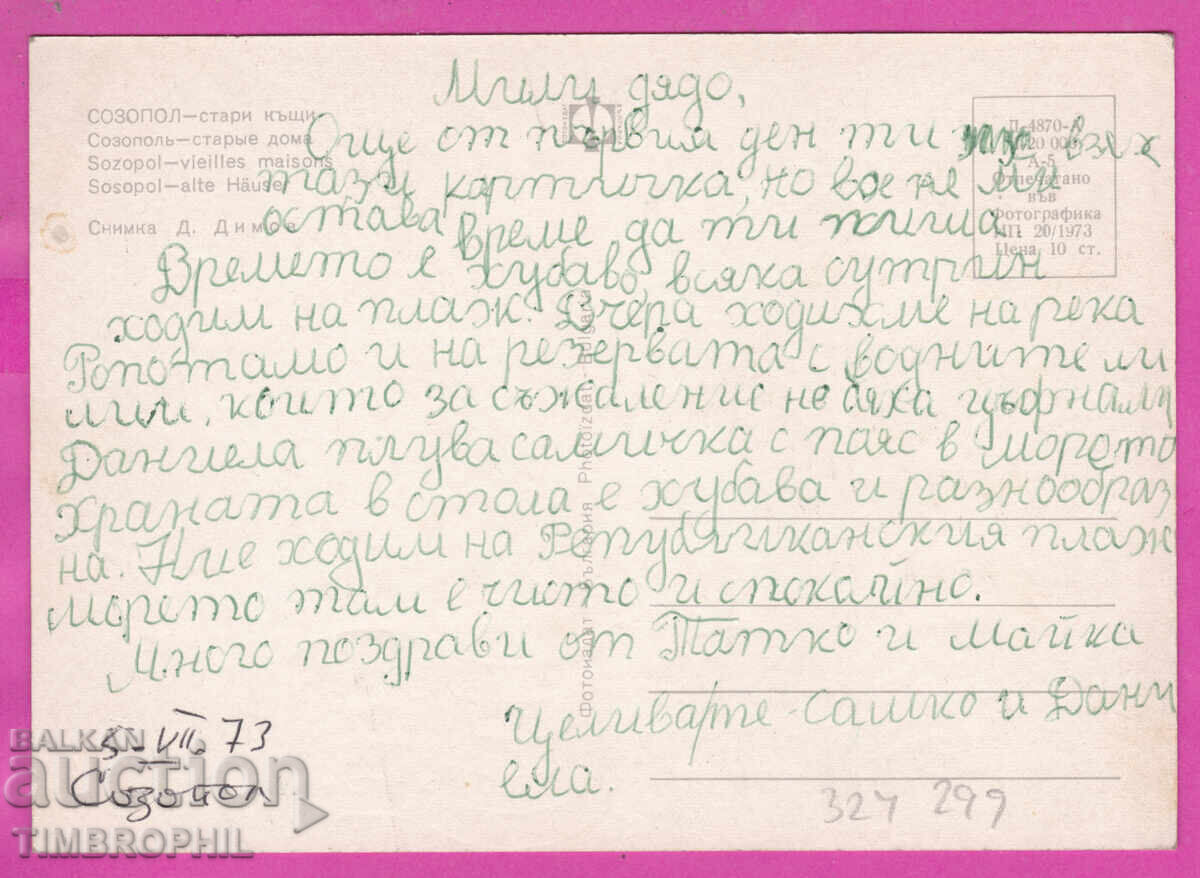 СОЗОПОЛ—стари къщи
Созополь—старые дома
Sozopol—vieilles maisons
Sosopol—alte Häuser
Снимка Д. Димов
Д-4870-А
20 000
А-5
Отпечатано
във
Фотографика
ИП 20/1973
Цена 10 ст.
Фотоиздат България Photoizdat
Мили дядо,
Още от първия ден ти взех
тази картичка, но все не ми
остава време да ти пиша.
Времето е хубаво, всяка сутрин
ходим на плаж. Вчера ходихме на река
Ропотамо и на резервата с водните ли
лии, които за съжаление не бяха цъфнали
Даниела плува самичка с пояс в морето
Храната в стола е хубава и разнообраз
на. Ние ходим на Републиканския плаж
морето там е чисто и спокойно.
Много поздрави от Татко и Майка
Целиварте - Сашко и Дани
ела.
5-VII. 73
Созопол
324 299
BALKAN
auction
TIMBROPHIL